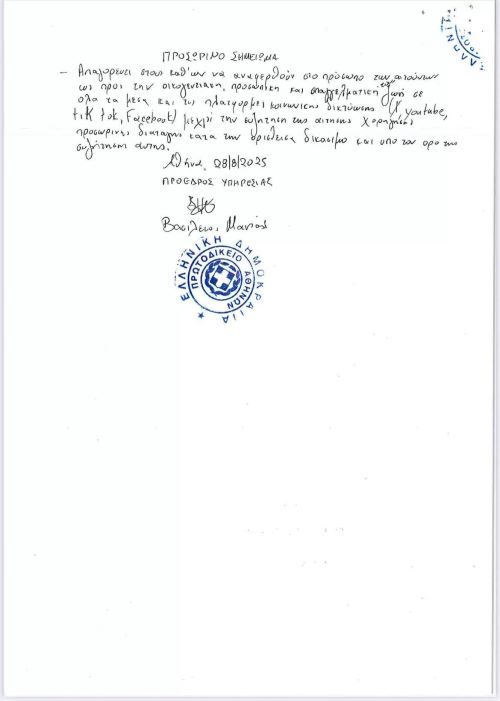 ΠΡΟΣΩΡΙΝΟ ΣΗΜΕΙΩΜΑ
– Απαγορεύει στους καθ'ων να αναφερθούν στο πρόσωπο των αιτούντων
ως προς την οικογενειακη, προσωπικη και επαγγελματικη ζωή σε
ολα τα μεσα και τις πλατφορμες κοινωνικης δικτυωσης (X youtube,
tiK tok, Facebook) μεχρι την συζητηση της αιτησης χορηγησης
προσωρινης διαταγης κατα την ορισθεισα δικασιμο και υπο τον ορο της
συζητησης αυτης.
Αθήνα, 28/8/2025
ΠΡΟΕΔΡΟΣ ΥΠΗΡΕΣΙΑΣ
Βασιλειος
ΕΛΛΗΝΙΚΗ ΔΗΜΟΚΡΑΤΙΑ
ΠΡΩΤΟΔΙΚΕΙΟ ΑΘΗΝΩΝ